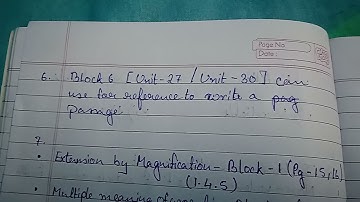 Page No
Date
6. Block 6 [Unit-27 / Unit-30] can
use for reference to write a pag
Passage
7.
• Extension by Magnification - Block - 1 (Pg - 15, 16
(1.4.5)
• Multiple meaning of